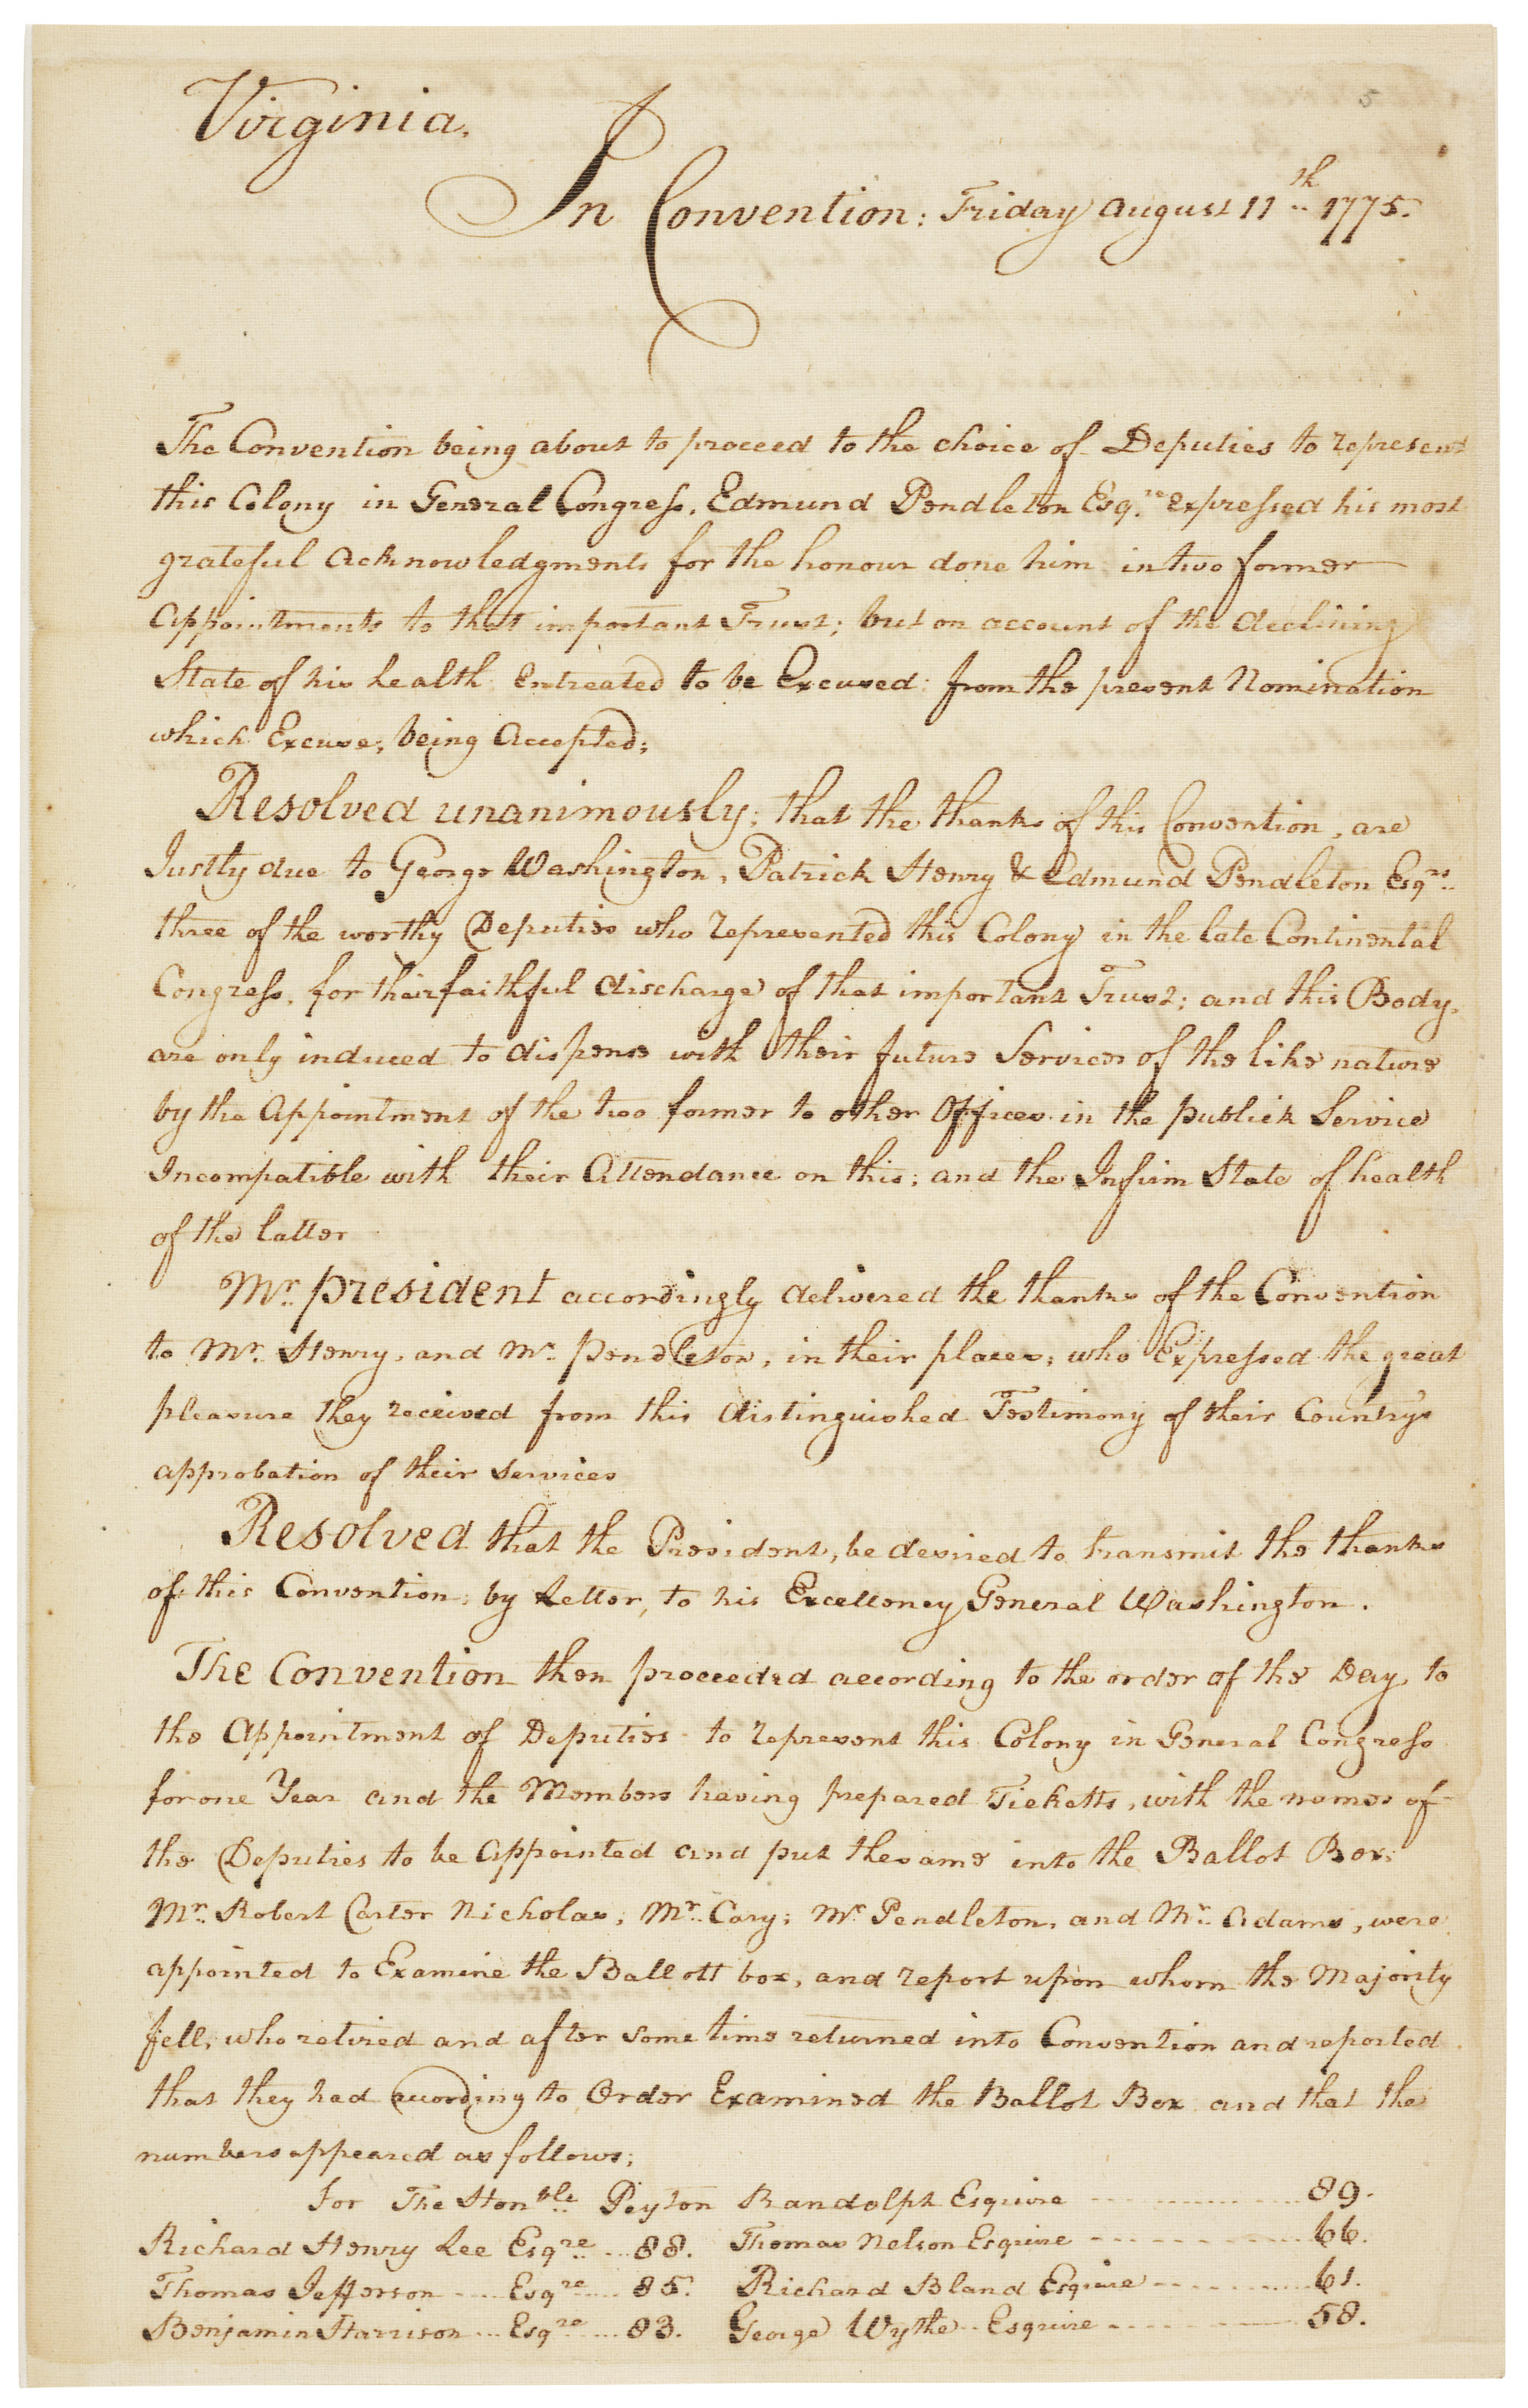 5
Virginia.
In Convention: Friday August 11th 1775.
The Convention being about to proceed to the choice of Deputies to represent
this Colony in General Congress, Edmund Pendleton Esqr.re expressed his most
grateful Acknowledgments for the honour done him in two former
Appointments to that important Trust; but on account of the declining
State of his health Entreated to be Excused: from the present Nomination
which Excuse; being Accepted;
Resolved unanimously; that the thanks of this Convention, are
Justly due to George Washington, Patrick Henry & Edmund Pendleton Esqrs.
three of the worthy Deputies who represented this Colony in the late Continental
Congress, for their faithful discharge of that important Trust; and this Body,
are only induced to dispense with their future Services of the like nature
by the Appointment of the two former to other Offices in the publick Service
Incompatible with their Attendance on this; and the Infirm State of health
of the latter
Mr. President accordingly delivered the thanks of the Convention
to Mr. Henry, and Mr. Pendleton, in their places; who Expressed the great
pleasure they received from this distinguished Testimony of their Countrys
approbation of their Services
Resolved that the President, be desired to transmit the thanks
of this Convention; by Letter, to his Excellency General Washington.
The Convention then proceeded according to the order of the Day to
the Appointment of Deputies to represent this Colony in General Congress
for one Year and the Members having prepared Ticketts, with the names of
the Deputies to be Appointed and put the same into the Ballot Box;
Mr. Robert Carter Nicholas; Mr. Cary; Mr. Pendleton, and Mr. Adams, were
appointed to Examine the Ballott box, and report upon whom the Majority
fell; who retired and after some time returned into Convention and reported
that they had according to Order Examined the Ballot Box and that the
numbers appeared as follows;
For The Honble Peyton Randolph Esquire 89.
Richard Henry Lee Esqre 88. Thomas Nelson Esquire 66.
Thomas Jefferson Esqre 85. Richard Bland Esquire 61.
Benjamin Harrison Esqre 83. George Wythe Esquire 58.